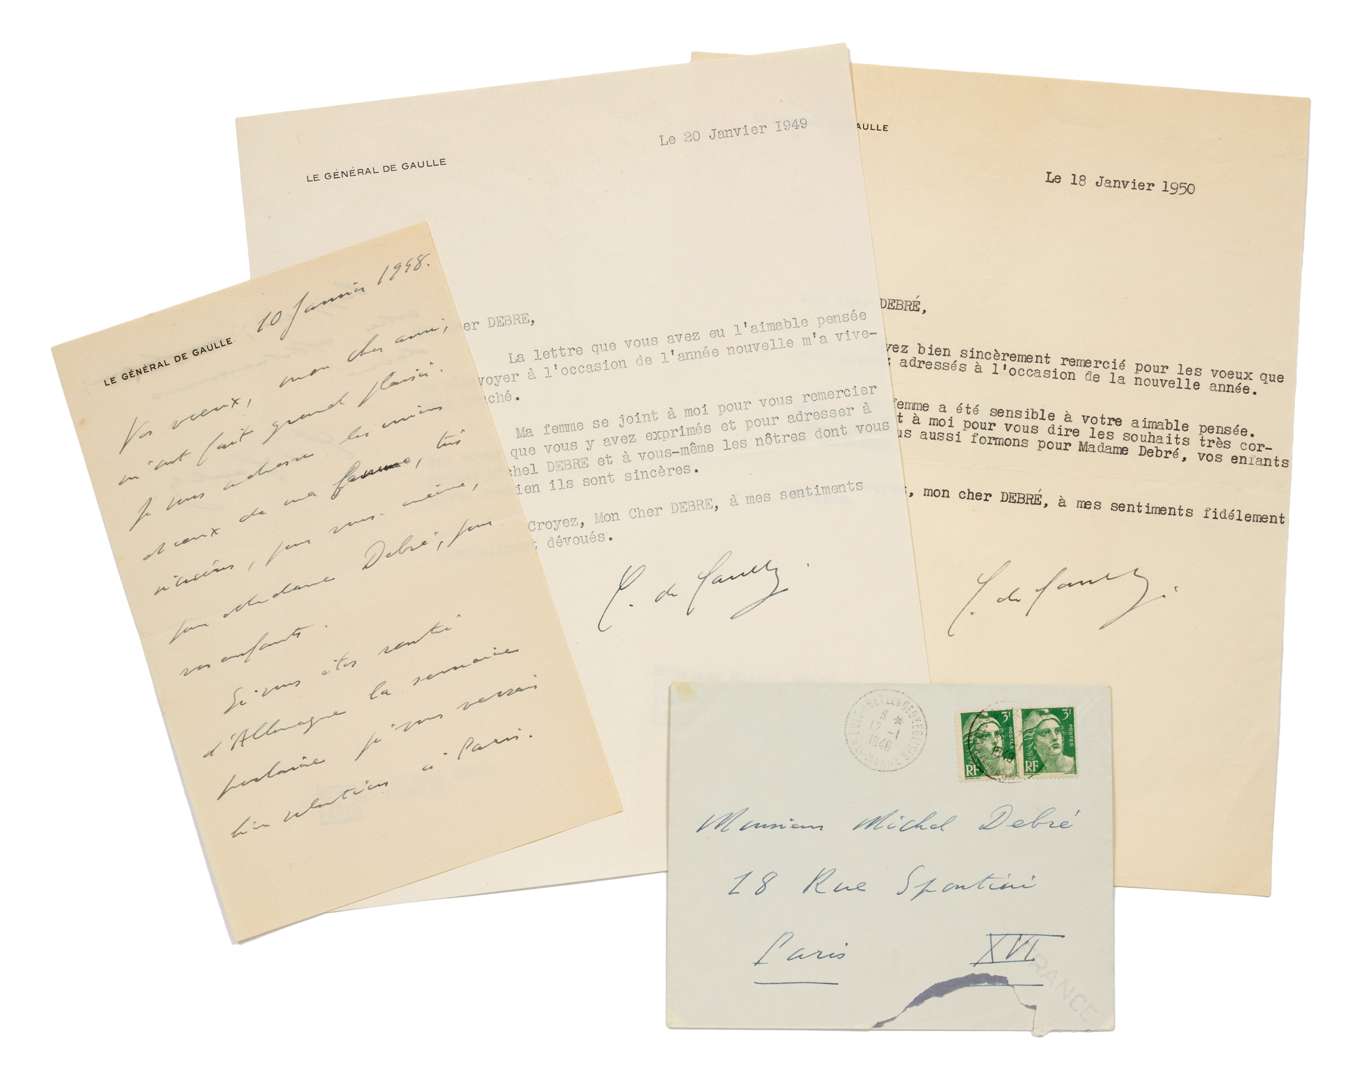 LE GÉNÉRAL DE GAULLE
10 Janvier 1948.
Vos vœux, mon cher ami,
m'ont fait grand plaisir.
Je vous adresse les miens
et ceux de ma femme, très
sincères, pour vous-même,
pour Madame Debré, pour
vos enfants.
Si vous êtes rentré
d'Allemagne la semaine
prochaine je vous verrais
bien volontiers à Paris.
LE GÉNÉRAL DE GAULLE
Le 20 Janvier 1949
er DEBRE,
La lettre que vous avez eu l'aimable pensée
voyer à l'occasion de l'année nouvelle m'a vive-
ché.
Ma femme se joint à moi pour vous remercier
que vous y avez exprimés et pour adresser à
chel DEBRE et à vous-même les nôtres dont vous
ien ils sont sincères.
Croyez, Mon Cher DEBRE, à mes sentiments
t dévoués.
C. de Gaulle.
AULLE
Le 18 Janvier 1950
DEBRÉ,
yez bien sincèrement remercié pour les voeux que
z adressés à l'occasion de la nouvelle année.
emme a été sensible à votre aimable pensée.
t à moi pour vous dire les souhaits très cor-
us aussi formons pour Madame Debré, vos enfants
, mon cher DEBRÉ, à mes sentiments fidélement
C. de Gaulle.
3F 3F
POSTES POSTES
RF RF
Monsieur Michel Debré
18 Rue Spontini
Paris XVI
RANCE